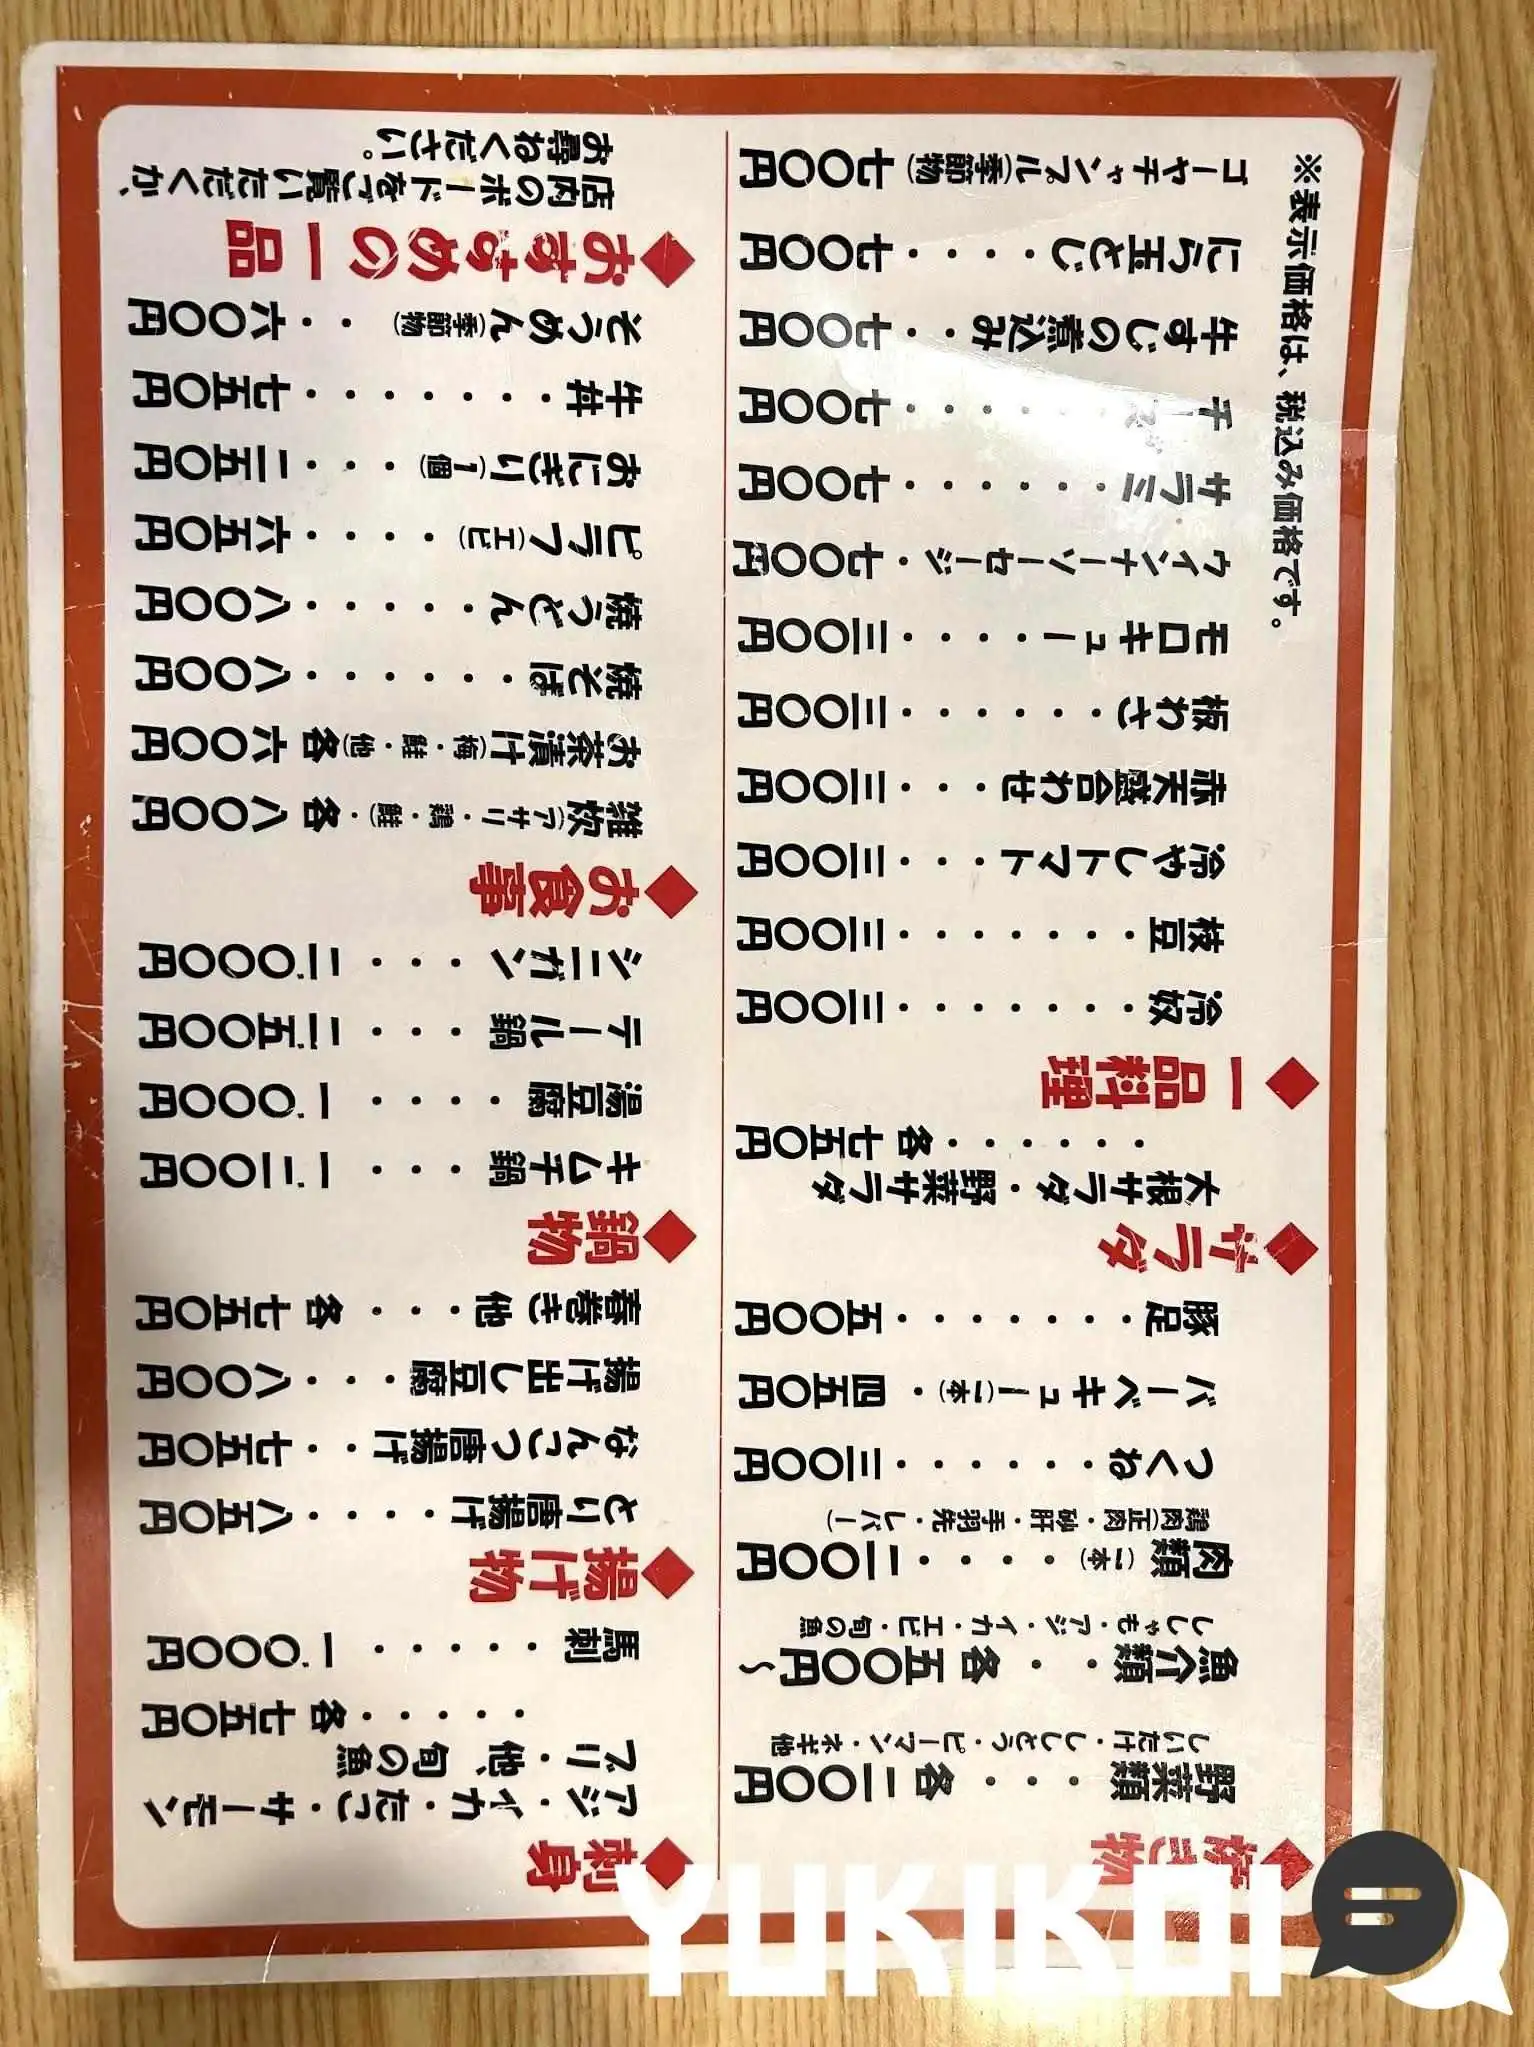 ◆焼き物
野菜類・・・各二〇〇円
しいたけ・ししとう・ピーマン・ネギ他
魚介類・・各五〇〇円〜
ししゃも・アジ・イカ・エビ・旬の魚
肉類(二本)・・・・二〇〇円
鶏肉(正肉・砂肝・手羽先・レバー)
つくね・・・・・・三〇〇円
バーベキュー(二本)・四五〇円
豚足・・・・・・・五〇〇円
◆サラダ
大根サラダ・野菜サラダ
・・・・・・各七五〇円
◆一品料理
冷奴・・・・・・・三〇〇円
枝豆・・・・・・・三〇〇円
冷やしトマト・・・三〇〇円
赤天盛合わせ・・・三〇〇円
板わさ・・・・・・三〇〇円
モロキュー・・・・三〇〇円
ウインナーソーセージ・七〇〇円
サラミ・・・・・・七〇〇円
チーズ・・・・・・七〇〇円
牛すじの煮込み・・七〇〇円
にら玉とじ・・・・七〇〇円
ゴーヤチャンプル(季節物)七〇〇円
※表示価格は、税込み価格です。
◆刺身
アジ・イカ・たこ・サーモン
ブリ・他、旬の魚
・・・・・各七五〇円
馬刺・・・・・一、〇〇〇円
◆揚げ物
とり唐揚げ・・・・八五〇円
なんこつ唐揚げ・・七五〇円
揚げ出し豆腐・・・八〇〇円
春巻き他・・・各七五〇円
◆鍋物
キムチ鍋・・・一、二〇〇円
湯豆腐・・・・一、〇〇〇円
テール鍋・・・二、五〇〇円
シニガン・・・二、〇〇〇円
◆お食事
雑炊(アサリ・鶏・鮭)・各八〇〇円
お茶漬け(梅・鮭・他)各六〇〇円
焼そば・・・・・・八〇〇円
焼うどん・・・・・八〇〇円
ピラフ(エビ)・・・・六五〇円
おにぎり(1個)・・・二五〇円
牛丼・・・・・・・七五〇円
そうめん(季節物)・・六〇〇円
◆おすすめの一品
店内のボードをご覧いただくか、
お尋ねください。
YUKIKOI